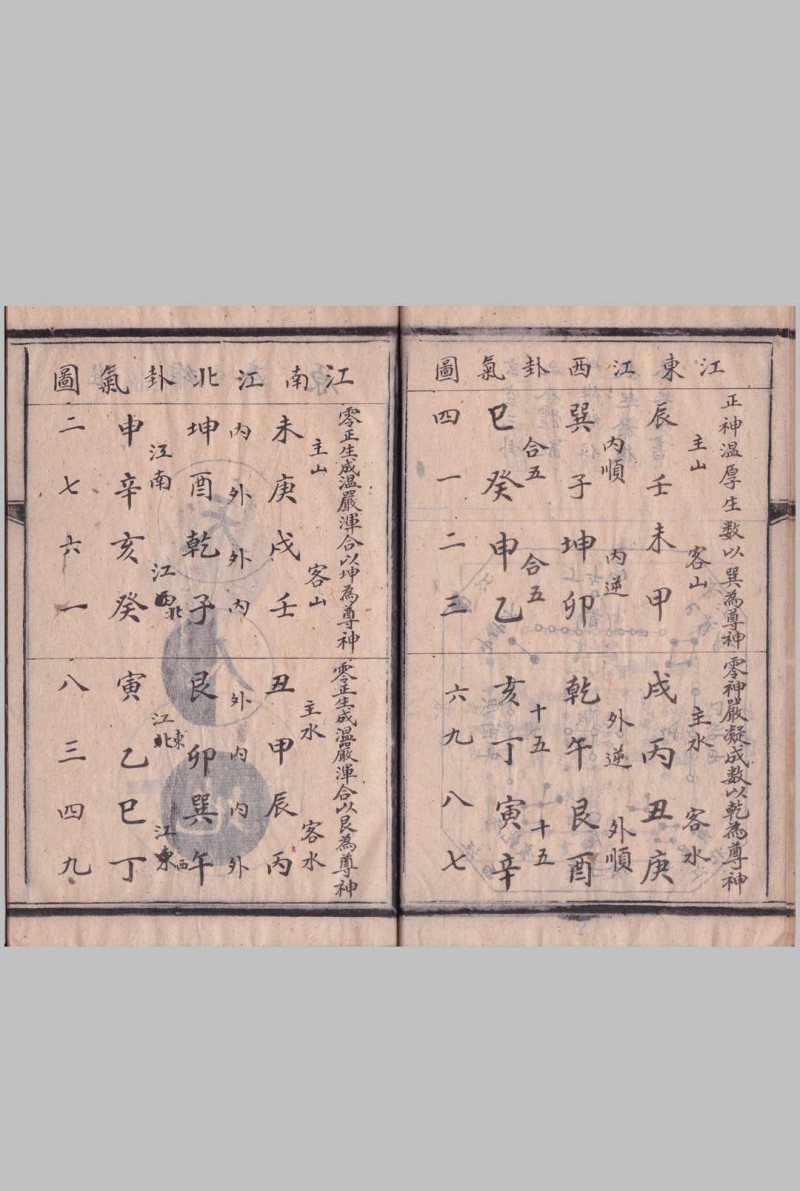 江東江西卦氣圖
正神溫厚生數以巽為尊神零神嚴凝成數以乾為尊神
主山 客山 主水 客水
辰壬未甲戌丙丑庚
內順 內逆 外逆 外順
巽子坤卯乾午艮酉
合五 合五 十五 十五
巳癸申乙亥丁寅辛
四一二三六九八七
江南江北卦氣圖
零正生成溫嚴渾合以坤為尊神零正生成溫嚴渾合以艮為尊神
主山 客山 主水 客水
未庚戌壬丑甲辰丙
內外外內外內內外
坤酉乾子艮卯巽午
江南 江北 江東北 江東西
申辛亥癸寅乙巳丁
二七六一八三四九